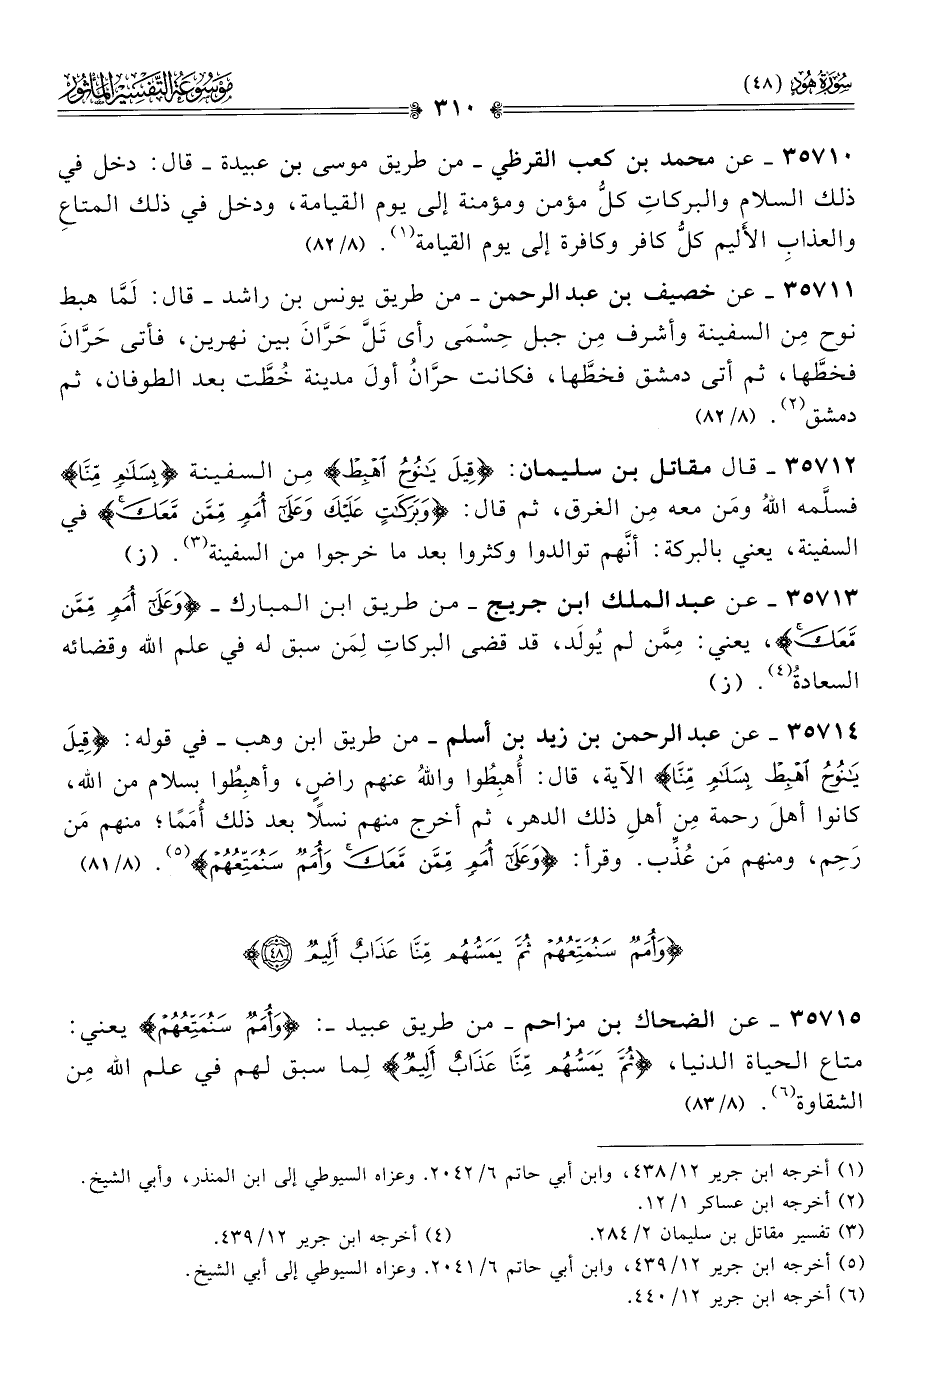 سُورَةُ هُودٍ (٤٨)
٣١٠
مَوْسُوعَةُ التَّفْسِيرِ المَأْثُورِ
٣٥٧١٠ ـ عن محمد بن كعب القرظي ـ من طريق موسى بن عبيدة ـ قال: دخل في
ذلك السلام والبركاتِ كلُّ مؤمن ومؤمنة إلى يوم القيامة، ودخل في ذلك المتاعِ
والعذابِ الأليم كلُّ كافر وكافرة إلى يوم القيامة(١). (٨٢/٨)
٣٥٧١١ ـ عن خصيف بن عبد الرحمن ـ من طريق يونس بن راشد ـ قال: لَمَّا هبط
نوح مِن السفينة وأشرف مِن جبل حِسْمَى رأى تَلَّ حَرَّانَ بين نهرين، فأتى حَرَّانَ
فخطَّها، ثم أتى دمشق فخطَّها، فكانت حرَّانُ أولَ مدينة خُطَّت بعد الطوفان، ثم
دمشق(٢). (٨٢/٨)
٣٥٧١٢ ـ قال مقاتل بن سليمان: ﴿قِيلَ يَٰنُوحُ ٱهْبِطْ﴾ مِن السفينة ﴿بِسَلَٰمٍ مِّنَّا﴾
فسلَّمه اللهُ ومَن معه مِن الغرق، ثم قال: ﴿وَبَرَكَٰتٍ عَلَيْكَ وَعَلَىٰٓ أُمَمٍ مِّمَّن مَّعَكَۚ﴾ في
السفينة، يعني بالبركة: أنَّهم توالدوا وكثروا بعد ما خرجوا من السفينة(٣). (ز)
٣٥٧١٣ ـ عن عبد الملك ابن جريج ـ من طريق ابن المبارك ـ ﴿وَعَلَىٰٓ أُمَمٍ مِّمَّن
مَّعَكَۚ﴾، يعني: مِمَّن لم يُولَد، قد قضى البركاتِ لِمَن سبق له في علم الله وقضائه
السعادةُ(٤). (ز)
٣٥٧١٤ ـ عن عبد الرحمن بن زيد بن أسلم ـ من طريق ابن وهب ـ في قوله: ﴿قِيلَ
يَٰنُوحُ ٱهْبِطْ بِسَلَٰمٍ مِّنَّا﴾ الآية، قال: أُهبِطُوا واللهُ عنهم راضٍ، وأهبِطُوا بسلام من الله،
كانوا أهلَ رحمة مِن أهلِ ذلك الدهر، ثم أخرج منهم نسلًا بعد ذلك أُمَمًا؛ منهم مَن
رَحِم، ومنهم مَن عُذِّب. وقرأ: ﴿وَعَلَىٰٓ أُمَمٍ مِّمَّن مَّعَكَۚ وَأُمَمٌ سَنُمَتِّعُهُمْ﴾(٥). (٨١/٨)
﴿وَأُمَمٌ سَنُمَتِّعُهُمْ ثُمَّ يَمَسُّهُم مِّنَّا عَذَابٌ أَلِيمٌ ٤٨﴾
٣٥٧١٥ ـ عن الضحاك بن مزاحم ـ من طريق عبيد ـ: ﴿وَأُمَمٌ سَنُمَتِّعُهُمْ﴾ يعني:
متاع الحياة الدنيا، ﴿ثُمَّ يَمَسُّهُم مِّنَّا عَذَابٌ أَلِيمٌ﴾ لِما سبق لهم في علم الله مِن
الشقاوة(٦). (٨٣/٨)
(١) أخرجه ابن جرير ٤٣٨/١٢، وابن أبي حاتم ٢٠٤٢/٦. وعزاه السيوطي إلى ابن المنذر، وأبي الشيخ.
(٢) أخرجه ابن عساكر ١٢/١.
(٣) تفسير مقاتل بن سليمان ٢٨٤/٢. (٤) أخرجه ابن جرير ٤٣٩/١٢.
(٥) أخرجه ابن جرير ٤٣٩/١٢، وابن أبي حاتم ٢٠٤١/٦. وعزاه السيوطي إلى أبي الشيخ.
(٦) أخرجه ابن جرير ٤٤٠/١٢.